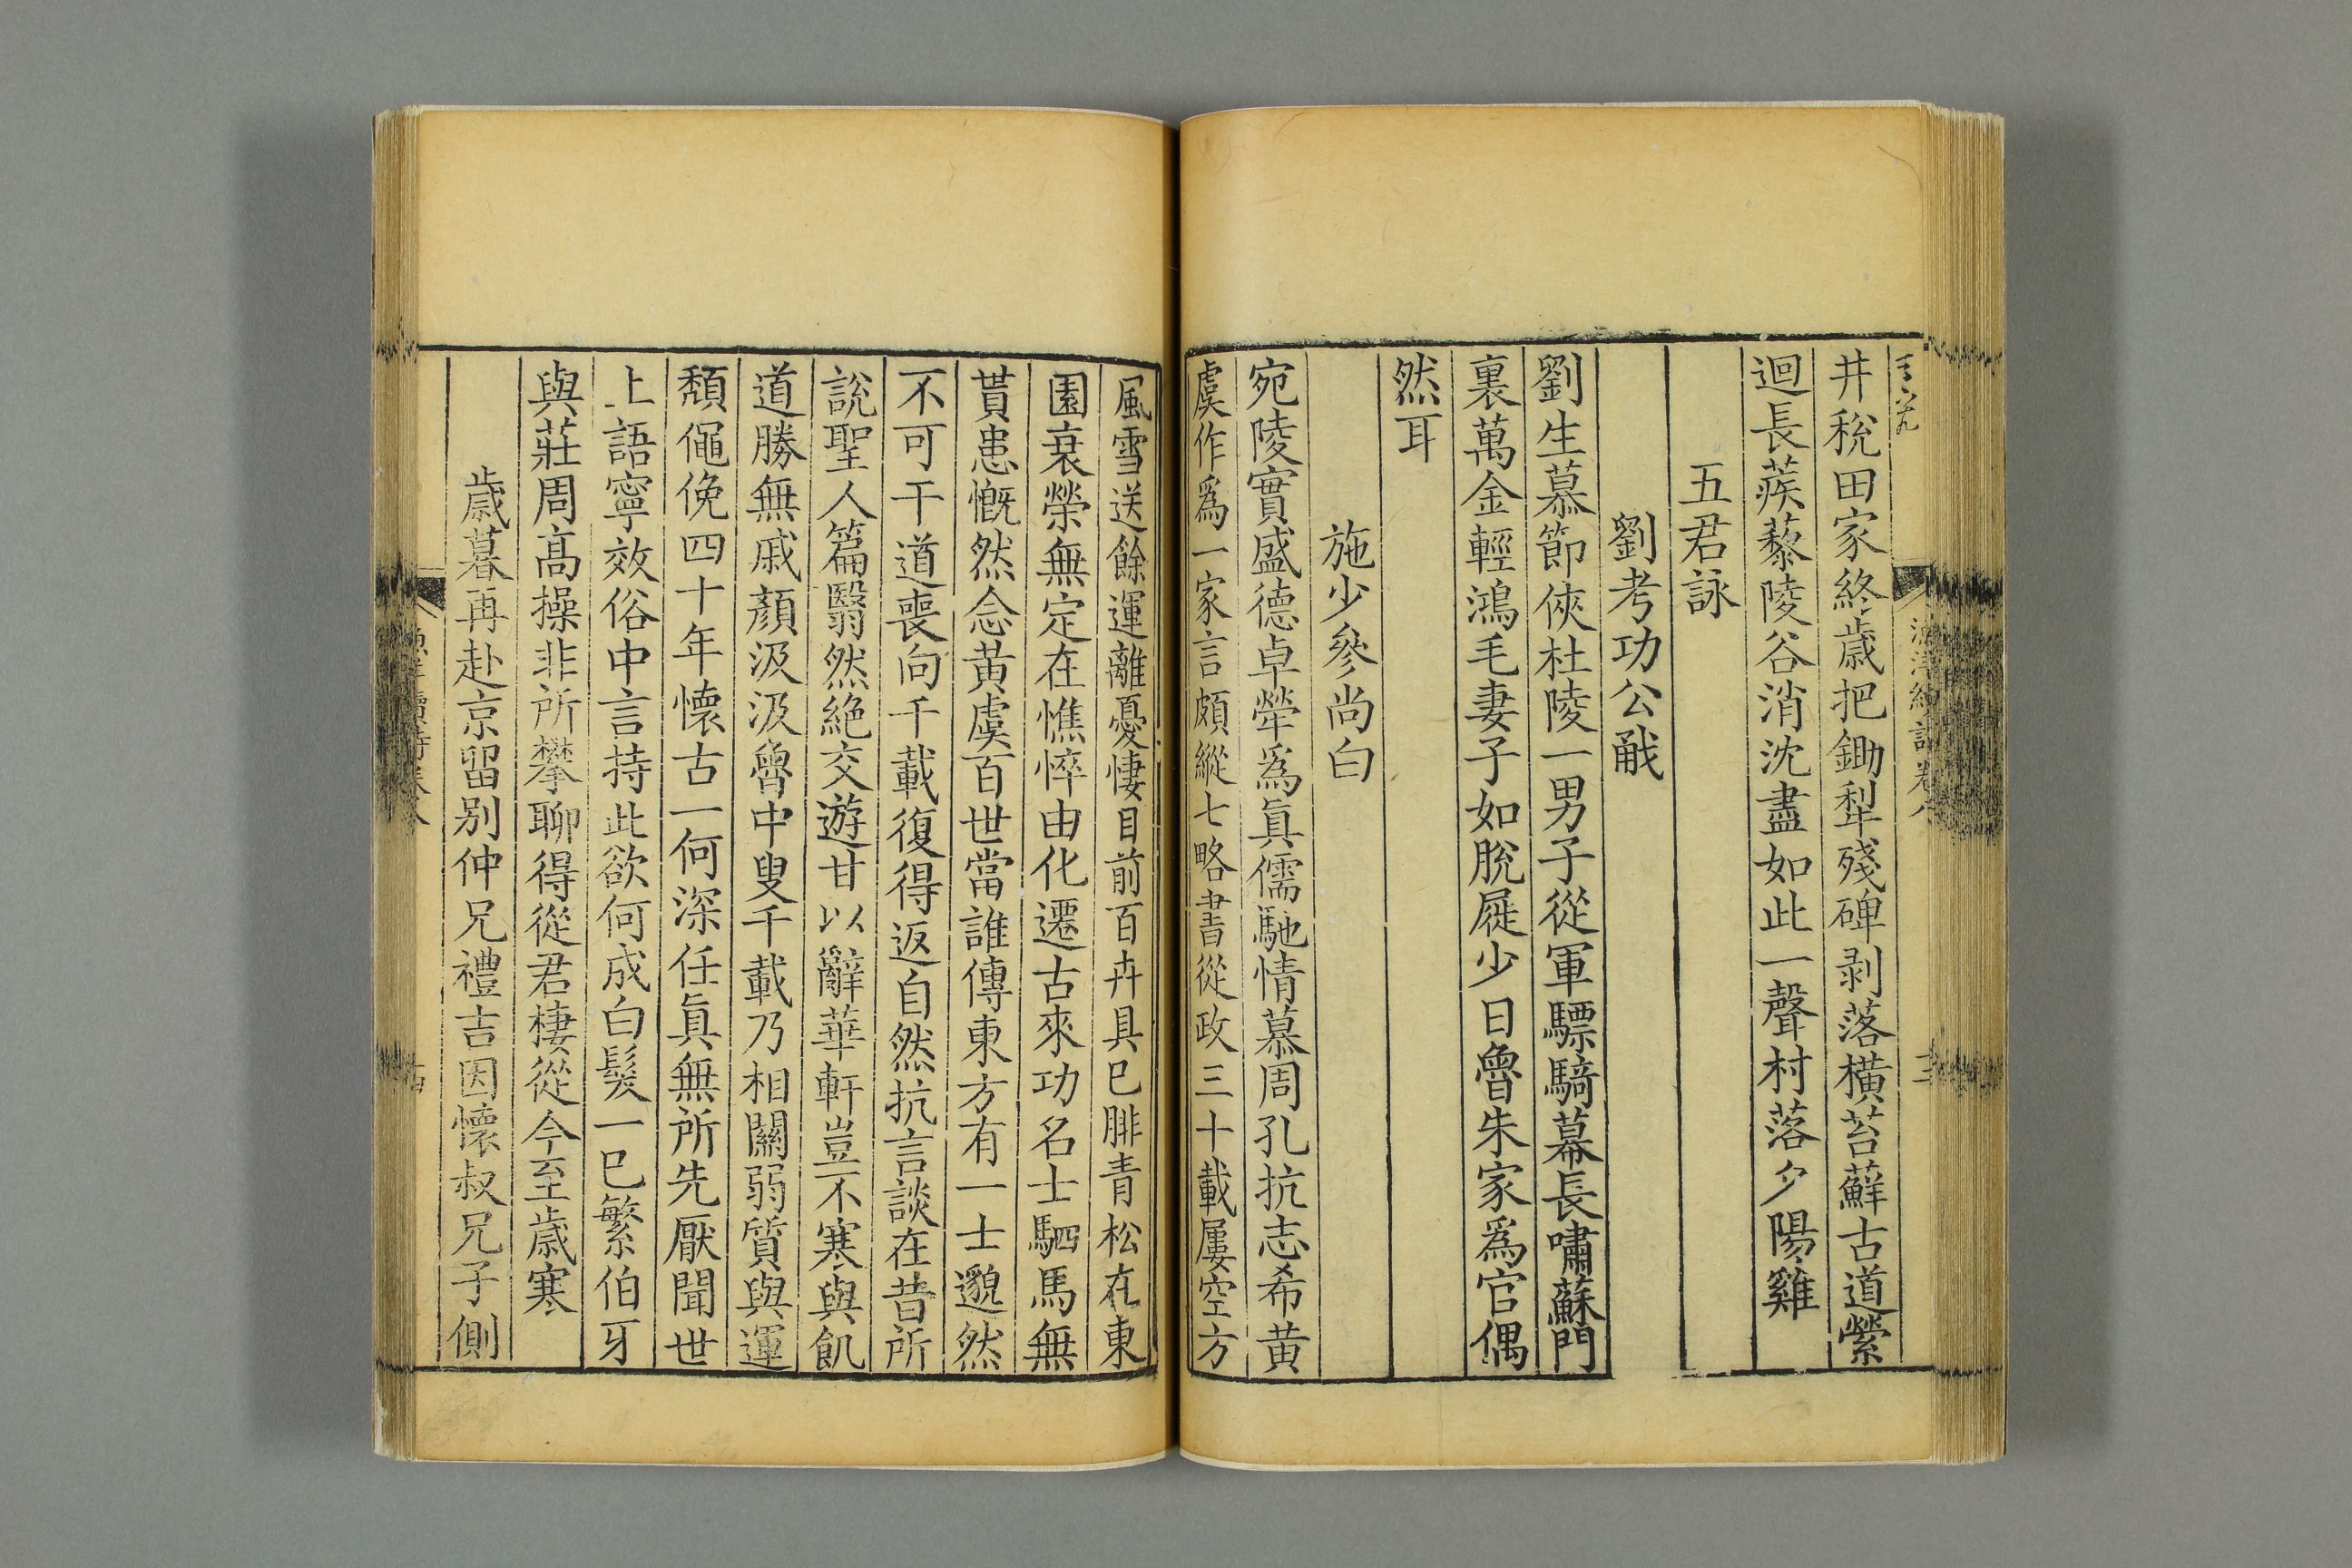 井稅田家終歲把鋤犁殘碑剥落横苔蘚古道縈
迴長蒺藜陵谷消沈盡如此一聲村落夕陽雞
五君詠
劉考功公㦷
劉生慕節俠杜陵一男子從軍驃騎幕長嘯蘇門
裏萬金輕鴻毛妻子如脫屣少日魯朱家爲官偶
然耳
施少參尚白
宛陵實盛德卓犖爲眞儒馳情慕周孔抗志希黃
虞作爲一家言頗縱七略書從政三十載屢空方
風雪送餘運離憂悽目前百卉具已腓青松在東
園衰榮無定在憔悴由化遷古來功名士駟馬無
貰患慨然念黃虞百世當誰傳東方有一士邈然
不可干道喪向千載復得返自然抗言談在昔所
說聖人篇翳然絶交遊甘以辭華軒豈不寒與飢
道勝無戚顏汲汲魯中叟千載乃相關弱質與運
頹僶俛四十年懷古一何深任眞無所先厭聞世
上語寧效俗中言持此欲何成白髮一已繁伯牙
與莊周高操非所攀聊得從君棲從今至歲寒
歲暮再赴京留别仲兄禮吉因懷叔兄子側